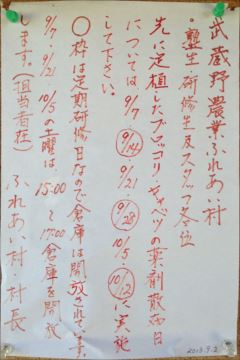 武蔵野農業ふれあい村
・塾生・研修生及スタッフ各位
先に定植したブロッコリ・キャベツの薬剤散布日
については9/7 9/14 9/21 9/28 10/5 10/12に実施
して下さい。
○枠は定期研修日なので倉庫は開放されています。
9/7・9/21 10/5の土曜は、15:00〜17:00倉庫を開放
します。(担当者荘)
ふれあい村・村長
2013.9.2